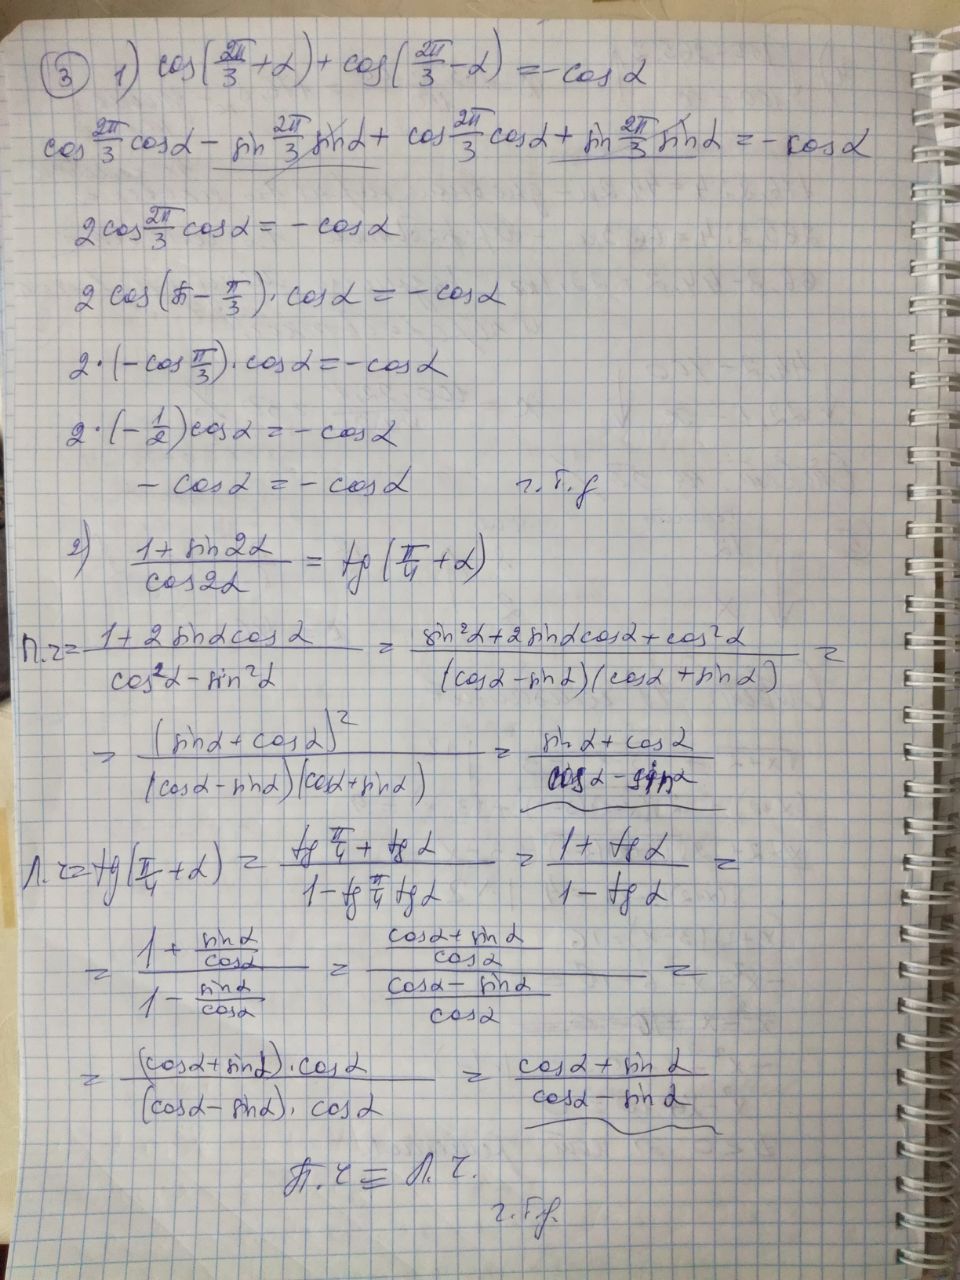 ③ 1) cos(2π/3 + α) + cos(2π/3 − α) = − cos α
cos 2π/3 cos α − sin 2π/3 sin α + cos 2π/3 cos α + sin 2π/3 sin α = − cos α
2 cos 2π/3 cos α = − cos α
2 cos(π − π/3) · cos α = − cos α
2 · (− cos π/3) · cos α = − cos α
2 · (− 1/2) cos α = − cos α
− cos α = − cos α ч.т.д
2) (1 + sin 2α)/(cos 2α) = tg(π/4 + α)
П.ч = (1 + 2 sin α cos α)/(cos²α − sin²α) = (sin²α + 2 sin α cos α + cos²α)/((cos α − sin α)(cos α + sin α)) =
= (sin α + cos α)²/((cos α − sin α)(cos α + sin α)) = (sin α + cos α)/(cos α − sin α)
Л.ч = tg(π/4 + α) = (tg π/4 + tg α)/(1 − tg π/4 tg α) = (1 + tg α)/(1 − tg α) =
= (1 + sin α/cos α)/(1 − sin α/cos α) = ((cos α + sin α)/cos α)/((cos α − sin α)/cos α) =
= ((cos α + sin α) · cos α)/((cos α − sin α) · cos α) = (cos α + sin α)/(cos α − sin α)
П.ч = Л.ч.
ч.т.д.